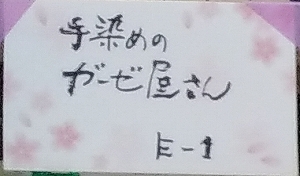 手染めの
ガーゼ屋さん
E-1